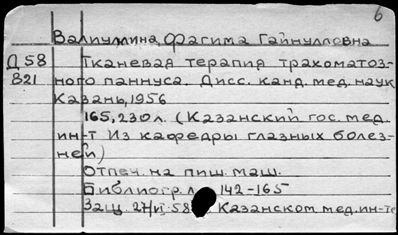 б
Валиуллина, Фагима Гайнулловна
Д58 Тканевая терапия трахоматоз-
В21 ного паннуса. Дисс. канд. мед. наук
Казань, 1956
165, 230 л. (Казанский гос. мед.
ин-т Из кафедры глазных болез-
ней)
Отпеч. на пиш. маш.
Библиогр. л. 142-165
Защ. 27/II 58 Казанском мед. ин-те